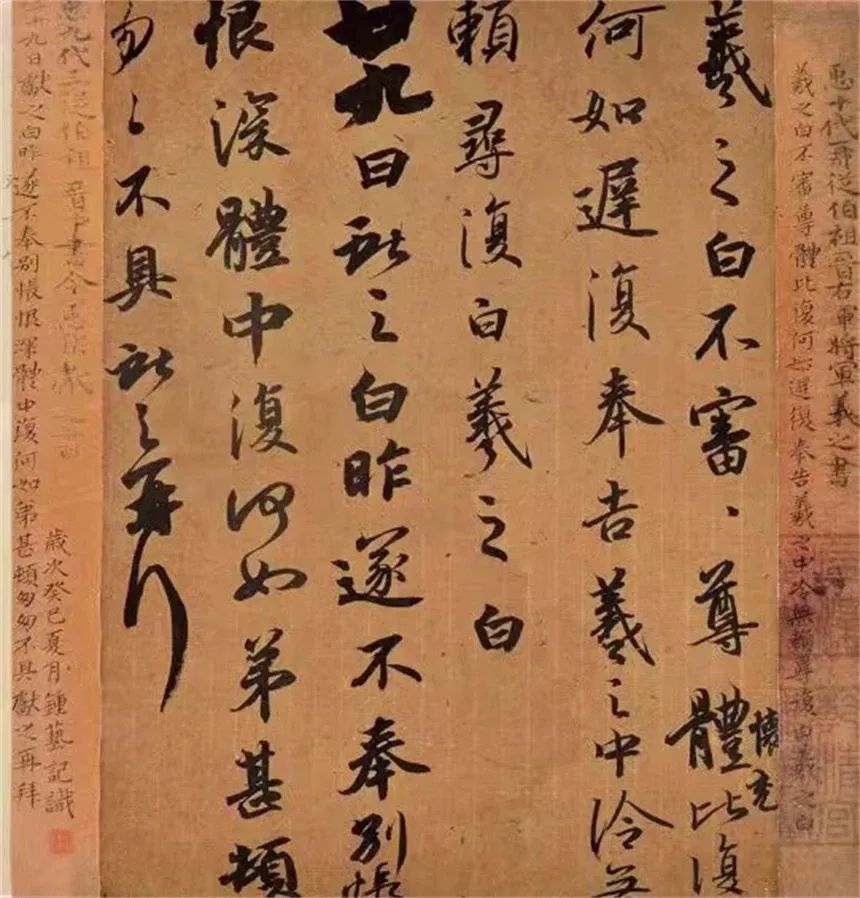 𢘑十代再從伯祖晉右軍將軍羲之書
羲之白不審尊體比復何如遲復奉告羲之中冷無賴尋復白羲之白
羲之白不審、尊體比復
懷充
何如遲復奉告羲之中冷無
賴尋復白羲之白
廿九日獻之白昨遂不奉別悵
恨深體中復何如弟甚頓
匆匆不具獻之再拜
𢘑九代三從伯祖晉中書令獻之書
歲次癸巳夏月鍾藝記識
二十九日獻之白昨遂不奉別悵恨深體中復何如弟甚頓匆匆不具獻之再拜